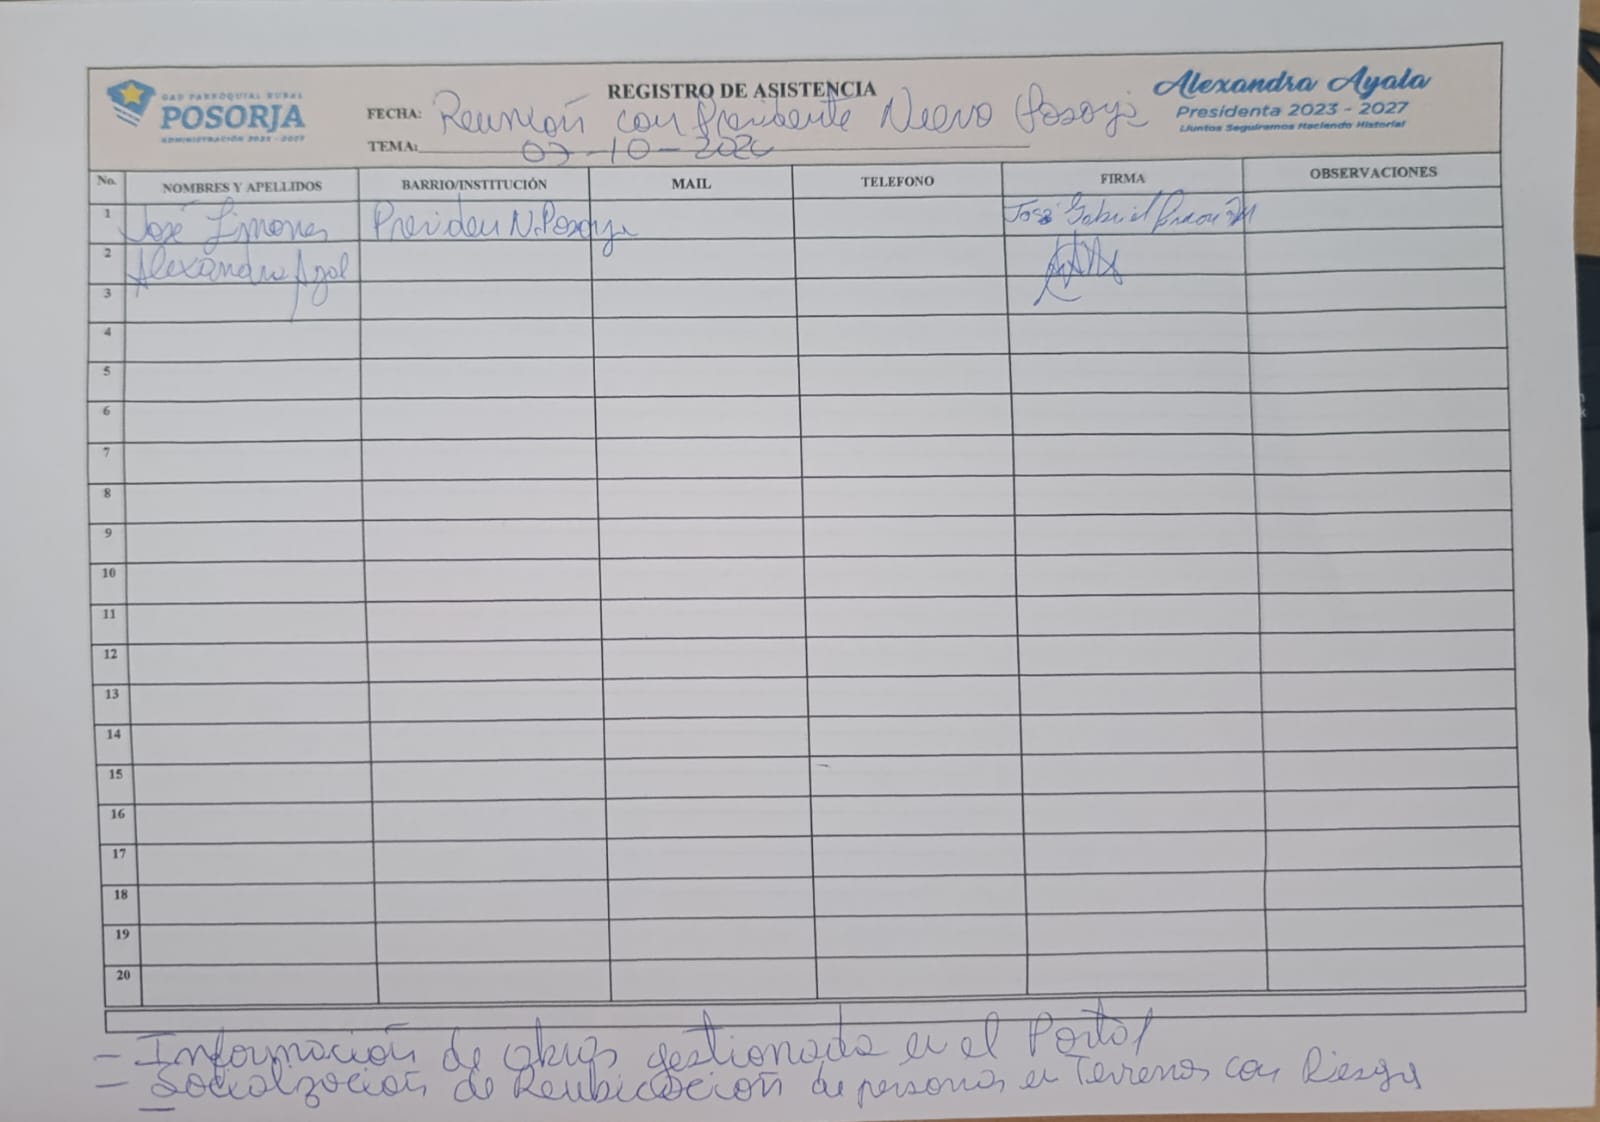 GAD PARROQUIAL RURAL
POSORJA
ADMINISTRACIÓN 2023 - 2027
REGISTRO DE ASISTENCIA
Alexandra Ayala
Presidenta 2023 - 2027
¡Juntos Seguiremos Haciendo Historia!
FECHA: Reunión con Presidente Nuevo Posorja
TEMA: 07-10-202
No. NOMBRES Y APELLIDOS BARRIO/INSTITUCIÓN MAIL TELEFONO FIRMA OBSERVACIONES
1 José Limones Presiden N. Posorja José Gabriel
2 Alexandra Ayal
3
4
5
6
7
8
9
10
11
12
13
14
15
16
17
18
19
20
- Información de obras gestionada en el Portal
- Socialzación de Reubicación de personas en Terrenos con Riesgo